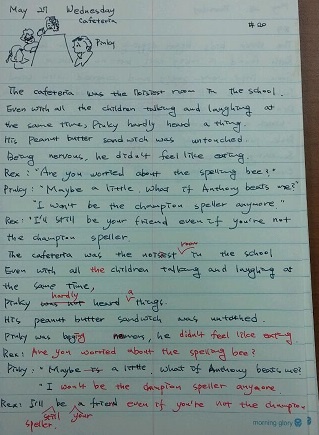 May 27 Wednesday
Cafeteria
#20
Pinky
The cafeteria was the noisiest room in the school.
Even with all the children talking and laughing at
the same time, Pinky hardly heard a thing.
His Peanut butter sandwich was untouched.
Being nervous, he didn't feel like eating.
Rex: "Are you worried about the spelling bee?"
Pinky: "Maybe a little. What if Anthony beats me?"
"I won't be the champion speller anymore."
Rex: "I'll still be your friend even if you're not
the champion speller.
The cafeteria was the noisest room in the school
Even with all the children talking and laughing at
the same time,
Pinky was not hardly heard a things.
His peanut butter sandwich was untothed.
Pinky was being nervous, he didn't feel like eating.
Rex: Are you worried about the spelling bee?
Pinky: "Maybe is a little, what if Anthony beats me?
"I won't be the champion speller anymore
Rex: I'll still be your friend even if you're not the champion
speller.
morning glory